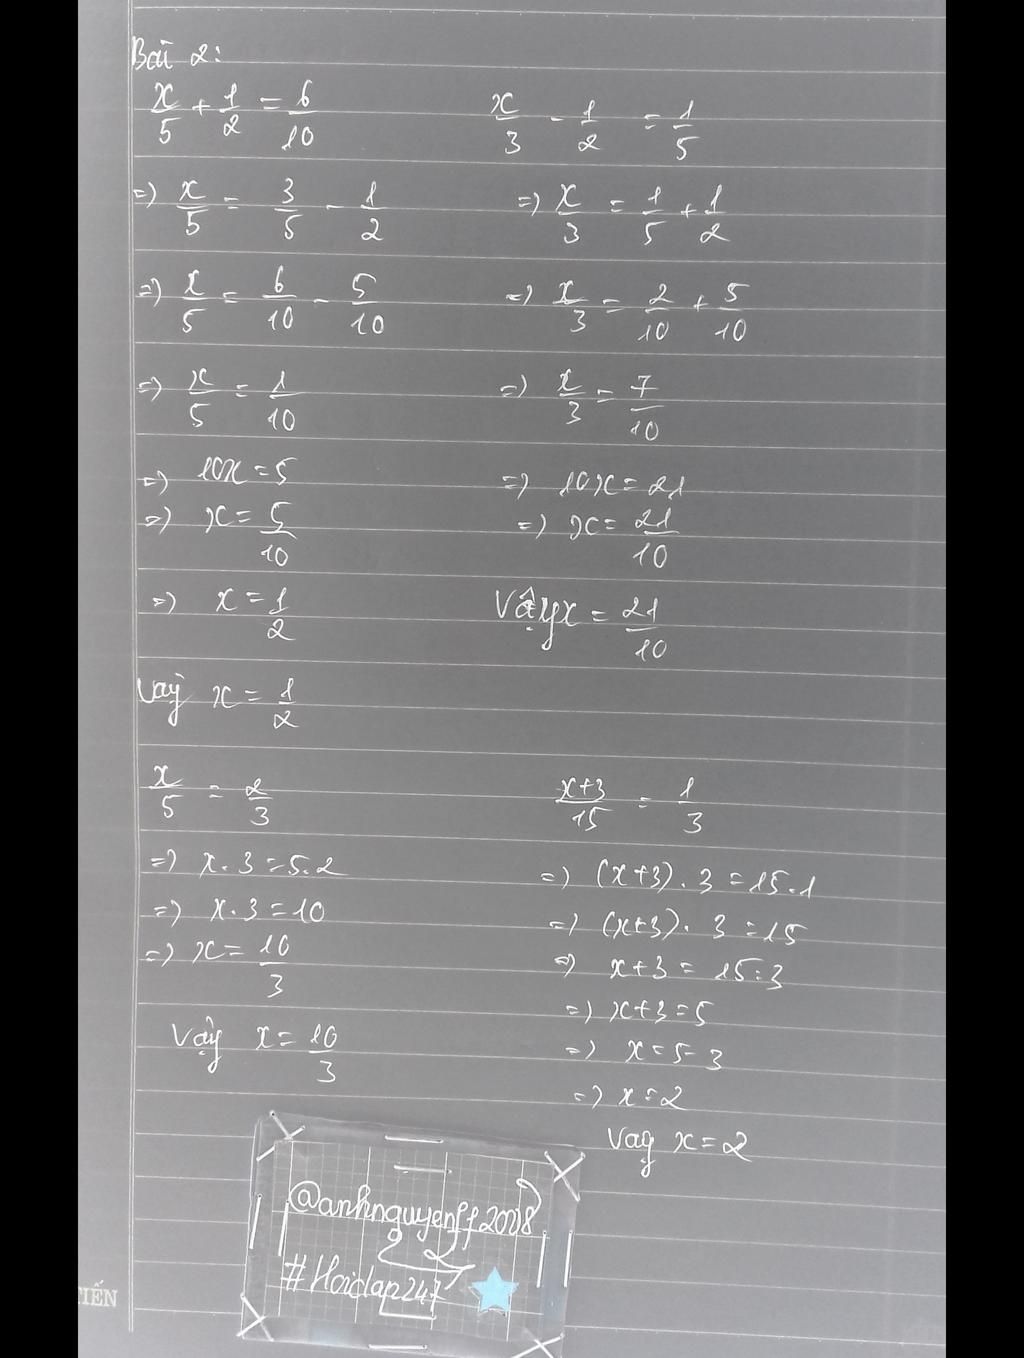 Bài 2:
x/5 + 1/2 = 6/10
=) x/5 = 3/5 - 1/2
=) x/5 = 6/10 - 5/10
=) x/5 = 1/10
=) 10x = 5
=) x = 5/10
=) x = 1/2
Vậy x = 1/2
x/3 - 1/2 = 1/5
=) x/3 = 1/5 + 1/2
=) x/3 = 2/10 + 5/10
=) x/3 = 7/10
=) 10x = 21
=) x = 21/10
Vậy x = 21/10
x/5 = 2/3
=) x . 3 = 5.2
=) x . 3 = 10
=) x = 10/3
Vậy x = 10/3
(x+3)/15 = 1/3
=) (x+3) . 3 = 15.1
=) (x+3) . 3 = 15
=) x+3 = 15:3
=) x+3 = 5
=) x = 5-3
=) x = 2
Vay x = 2
@anhnguyenff2008
#Hoidap247
TIẾN